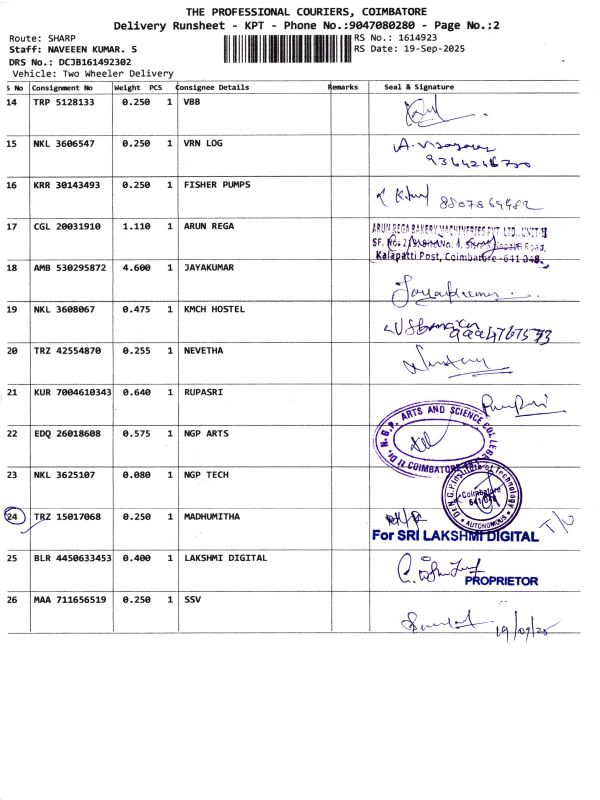 THE PROFESSIONAL COURIERS, COIMBATORE
Delivery Runsheet - KPT - Phone No.:9047080280 - Page No.:2
Route: SHARP
RS No.: 1614923
Staff: NAVEEEN KUMAR. S
RS Date: 19-Sep-2025
DRS No.: DCJB161492302
Vehicle: Two Wheeler Delivery
S No Consignment No Weight PCS Consignee Details Remarks Seal & Signature
14 TRP 5128133 0.250 1 VBB
15 NKL 3606547 0.250 1 VRN LOG
16 KRR 30143493 0.250 1 FISHER PUMPS
17 CGL 20031910 1.110 1 ARUN REGA
ARUN REGA BAKERY MACHINERIES PVT. LTD.,
Kalapatti Post, Coimbatore - 641 048.
18 AMB 530295872 4.600 1 JAYAKUMAR
19 NKL 3608067 0.475 1 KMCH HOSTEL
20 TRZ 42554870 0.255 1 NEVETHA
21 KUR 7004610343 0.640 1 RUPASRI
22 EDQ 26018608 0.575 1 NGP ARTS
Dr. N.G.P. ARTS AND SCIENCE COLLEGE
COIMBATORE
23 NKL 3625107 0.080 1 NGP TECH
Dr. N.G.P. Institute of Technology
Coimbatore
AUTONOMOUS
24 TRZ 15017068 0.250 1 MADHUMITHA
For SRI LAKSHMI DIGITAL
25 BLR 4450633453 0.400 1 LAKSHMI DIGITAL
PROPRIETOR
26 MAA 711656519 0.250 1 SSV
19/09/25